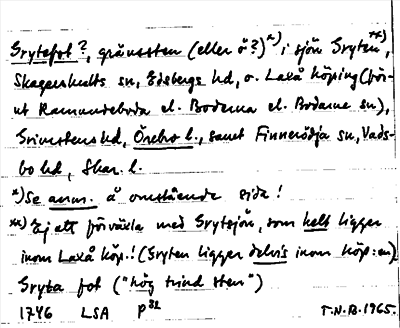 Grytefot?, gränssten (eller ö?)*) i sjön Gryten**),
Skagershults sn, Edsbergs hd, o. Laxå köping (för-
ut Ramundeboda el. Boderna el. Bodarne sn),
Grimstens hd, Örebro l., samt Finnerödja sn, Vads-
bo hd, Skar. l.
*) Se anm. å omstående sida!
**) Ej att förväxla med Grytsjön, som helt ligger
inom Laxå köp.! (Gryten ligger delvis inom köp:en)
Gryta fot ("hög trind sten")
1746 LSA P32
T.N.B. 1965.